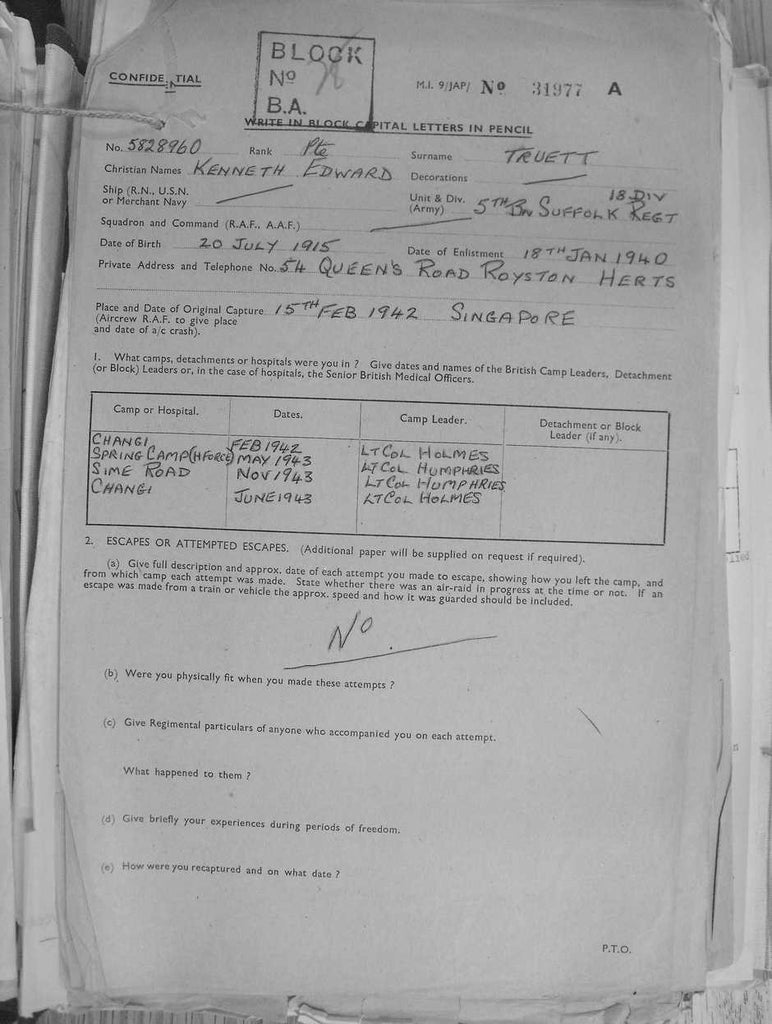 BLOCK
CONFIDENTIAL
Nº 78
M.I. 9/JAP/ Nº 31977 A
B.A.
WRITE IN BLOCK CAPITAL LETTERS IN PENCIL
No. 5828960 Rank Pte Surname TRUETT
Christian Names KENNETH EDWARD Decorations
Ship (R.N., U.S.N. or Merchant Navy
Unit & Div. (Army) 5TH BN SUFFOLK REGT 18 DIV
Squadron and Command (R.A.F., A.A.F.)
Date of Birth 20 JULY 1915 Date of Enlistment 18TH JAN 1940
Private Address and Telephone No. 54 QUEEN'S ROAD ROYSTON HERTS
Place and Date of Original Capture 15TH FEB 1942 SINGAPORE
(Aircrew R.A.F. to give place
and date of a/c crash).
1. What camps, detachments or hospitals were you in ? Give dates and names of the British Camp Leaders, Detachment
(or Block) Leaders or, in the case of hospitals, the Senior British Medical Officers.
Camp or Hospital. Dates. Camp Leader. Detachment or Block
Leader (if any).
CHANGI FEB 1942 LT COL HOLMES
SPRING CAMP (H FORCE) MAY 1943 LT COL HUMPHRIES
SIME ROAD NOV 1943 LT COL HUMPHRIES
CHANGI JUNE 1943 LT COL HOLMES
2. ESCAPES OR ATTEMPTED ESCAPES. (Additional paper will be supplied on request if required).
(a) Give full description and approx. date of each attempt you made to escape, showing how you left the camp, and
from which camp each attempt was made. State whether there was an air-raid in progress at the time or not. If an
escape was made from a train or vehicle the approx. speed and how it was guarded should be included.
NO
(b) Were you physically fit when you made these attempts ?
(c) Give Regimental particulars of anyone who accompanied you on each attempt.
What happened to them ?
(d) Give briefly your experiences during periods of freedom.
(e) How were you recaptured and on what date ?
P.T.O.